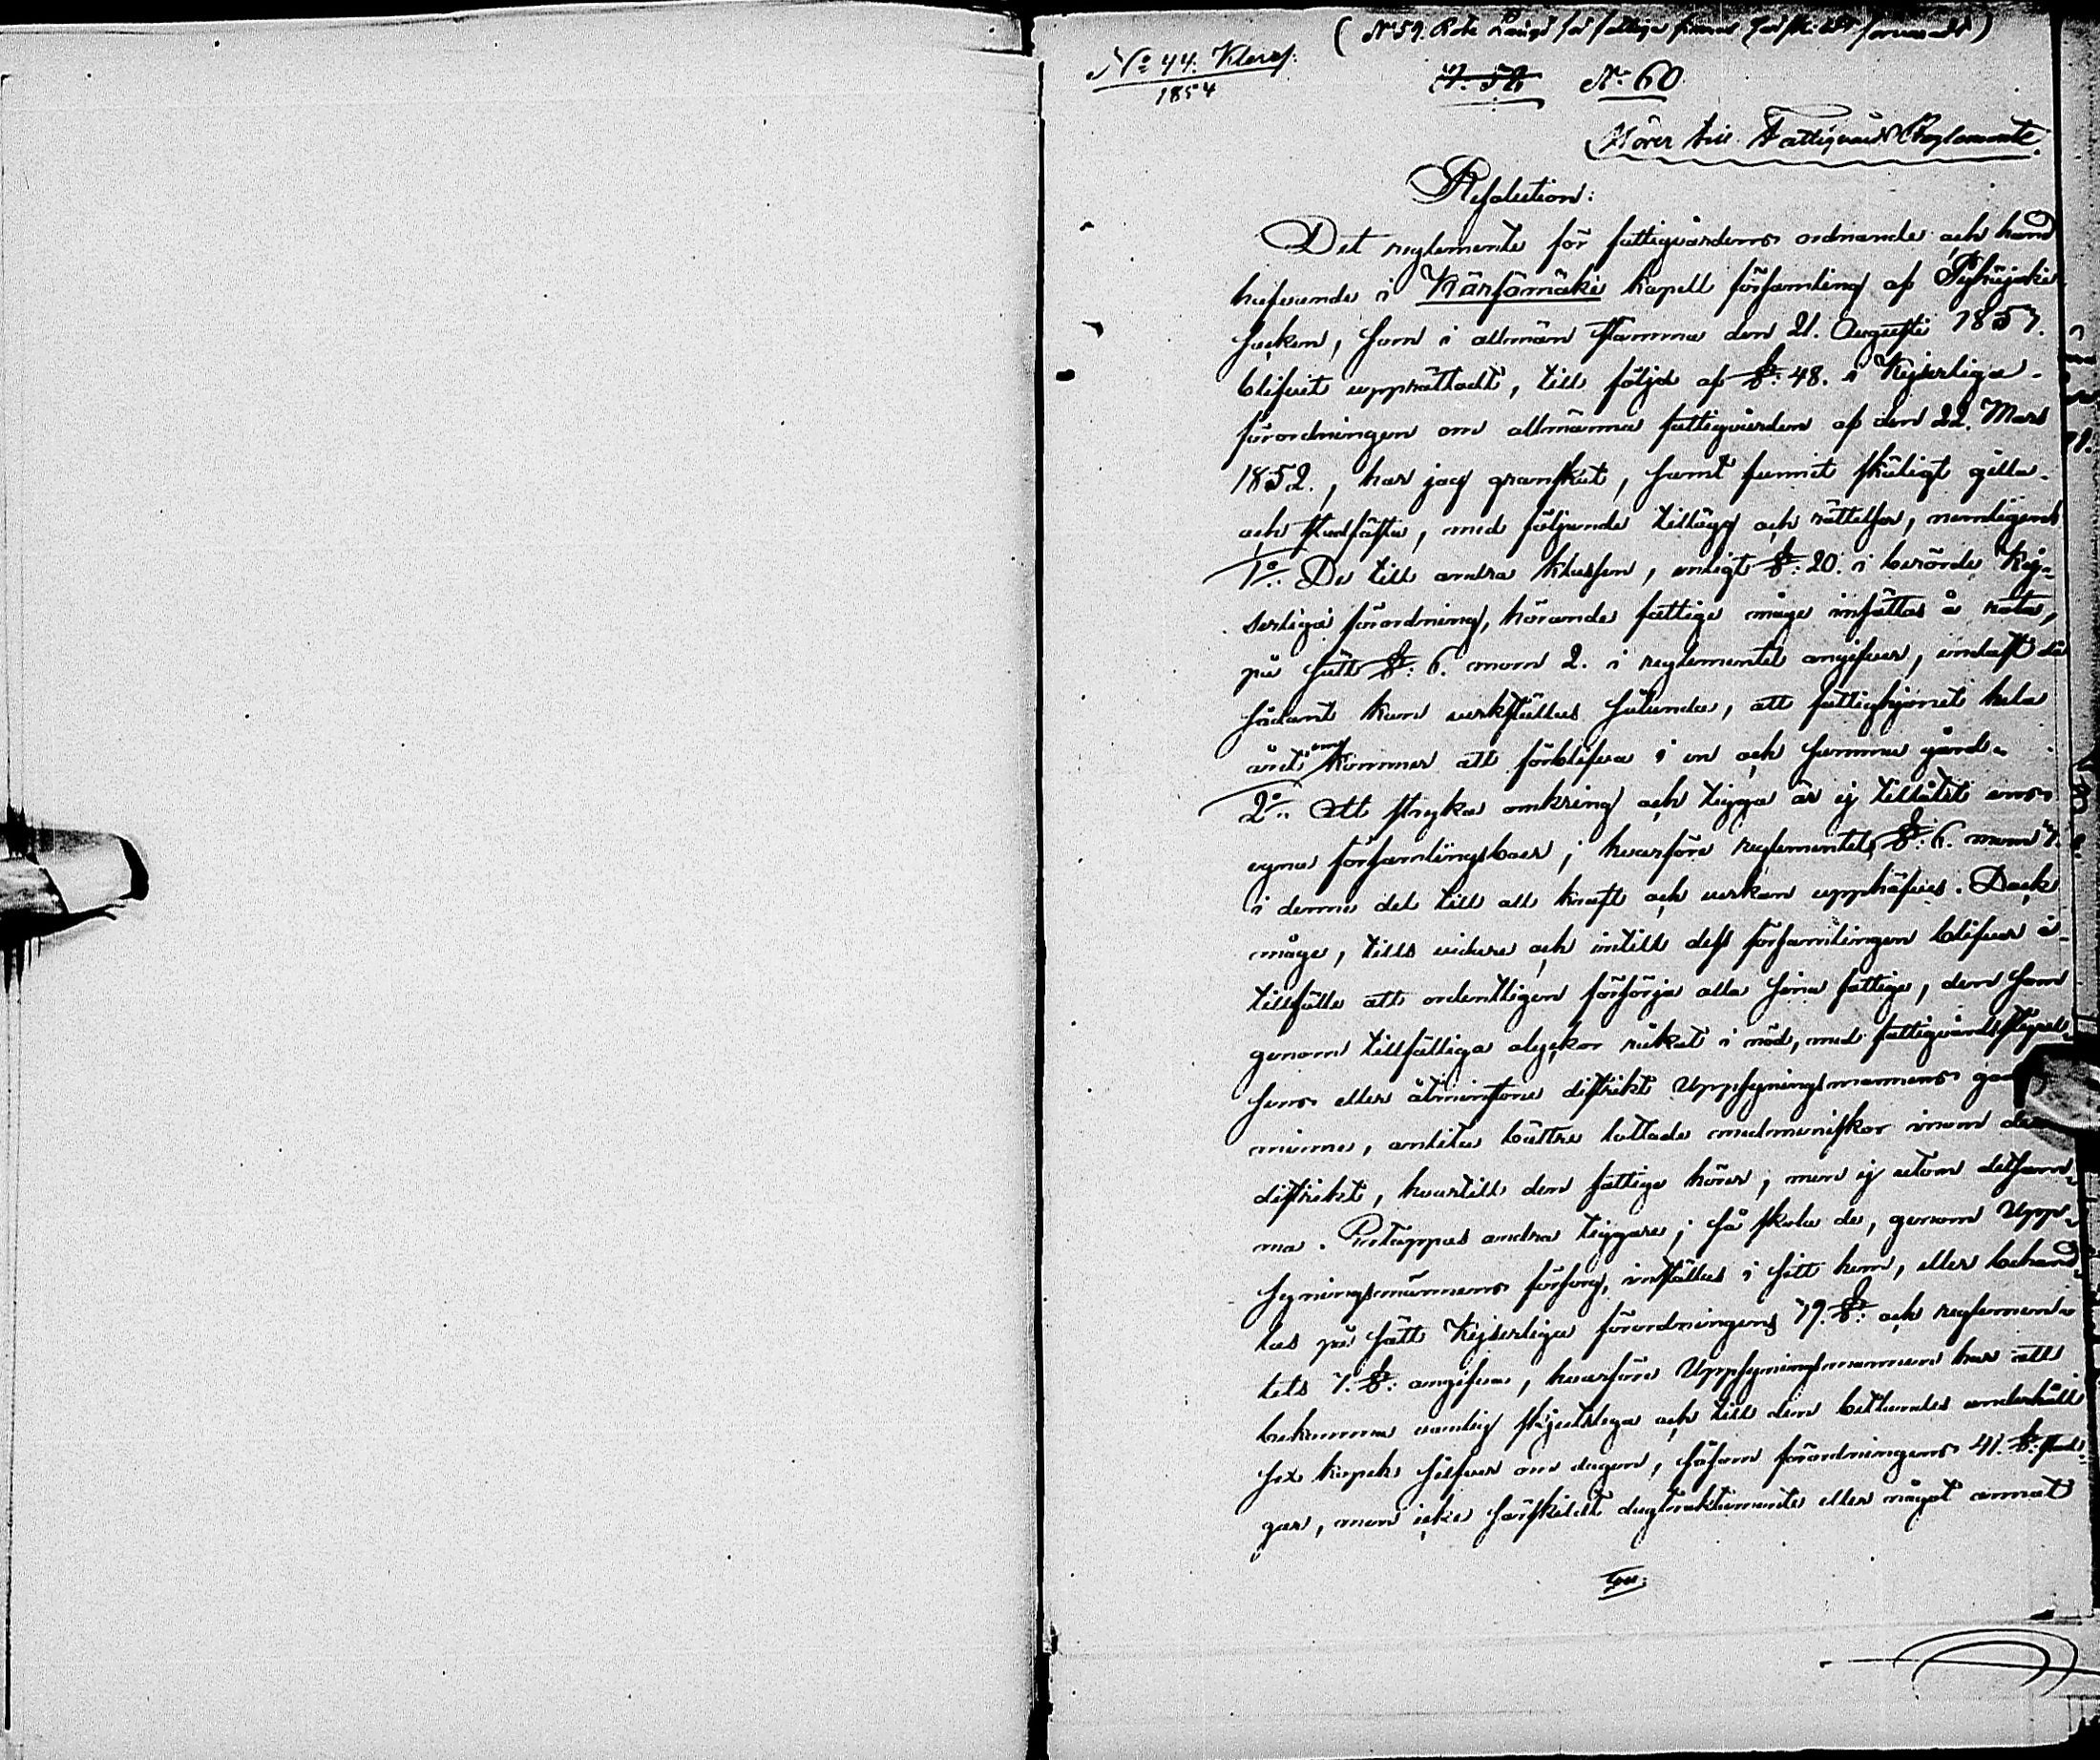 (N:o 59. Rote Längd för fattiga finnes särskildt förvarad)
N:o 44. Kleref.
1854
N:o 60
Hörer till Fattigvård Reglemente.
Resolution:
Det reglemente för fattigvårdens ordnande och hand
hafvande i Kärsämäki Kapell församling af Pyhäjoki
socken, som i allmän stämma den 21. Augusti 1857.
blifvit upprättadt, till följd af §: 48. i Kejserliga
förordningen om allmänna fattigvården af den 22. Mars
1852., har jag granskat, samt funnit skäligt gilla
och stadfästa, med följande tillägg och rättelser, nemligen
1:o De till andra klassen, enligt §: 20. i berörde Kej-
serliga förordning, hörande fattige måge insättas å rota,
på sätt §: 6. mom 2. i reglementet angifver, endast då
sådant kan verkställas sålunda, att fattighjonet hela
året om kommer att förblifva i en och samma gård.
2:o Att stryka omkring och tigga är ej tillåtit ens
egna församlingsboer; hvarföre reglementets §: 6. mom 7.
i denna del till all kraft och verkan upphäfves. Dock
måge, tills vidare och intill dess församlingen blifver i
tillfälle att ordentligen försörja alla sina fattige, den som
genom tillfälliga olyckor råkat i nöd, med fattigvårdsstyrel-
sens eller åtminstone distrikt Uppsyningsmannens god
minne, anlita bättre lottade medmeniskor inom det
distrikt, hvartill den fattige hörer, men ej utom detsam-
ma. Ertappas andra tiggare; så skola de, genom Upp-
syningsmännens försorg, inställas i sitt hem, eller behand-
las på sätt Kejserliga förordningens 19. §: och reglemen-
tets 7. §: angifva, hvarföre Uppsyningsmannen har att
bekomma vanlig skjutslega och till den bettlandes underhåll
sex kopek silfver om dagen, såsom förordningens 41. §: stad-
gar, men icke särskildt dagtraktamente eller något annat